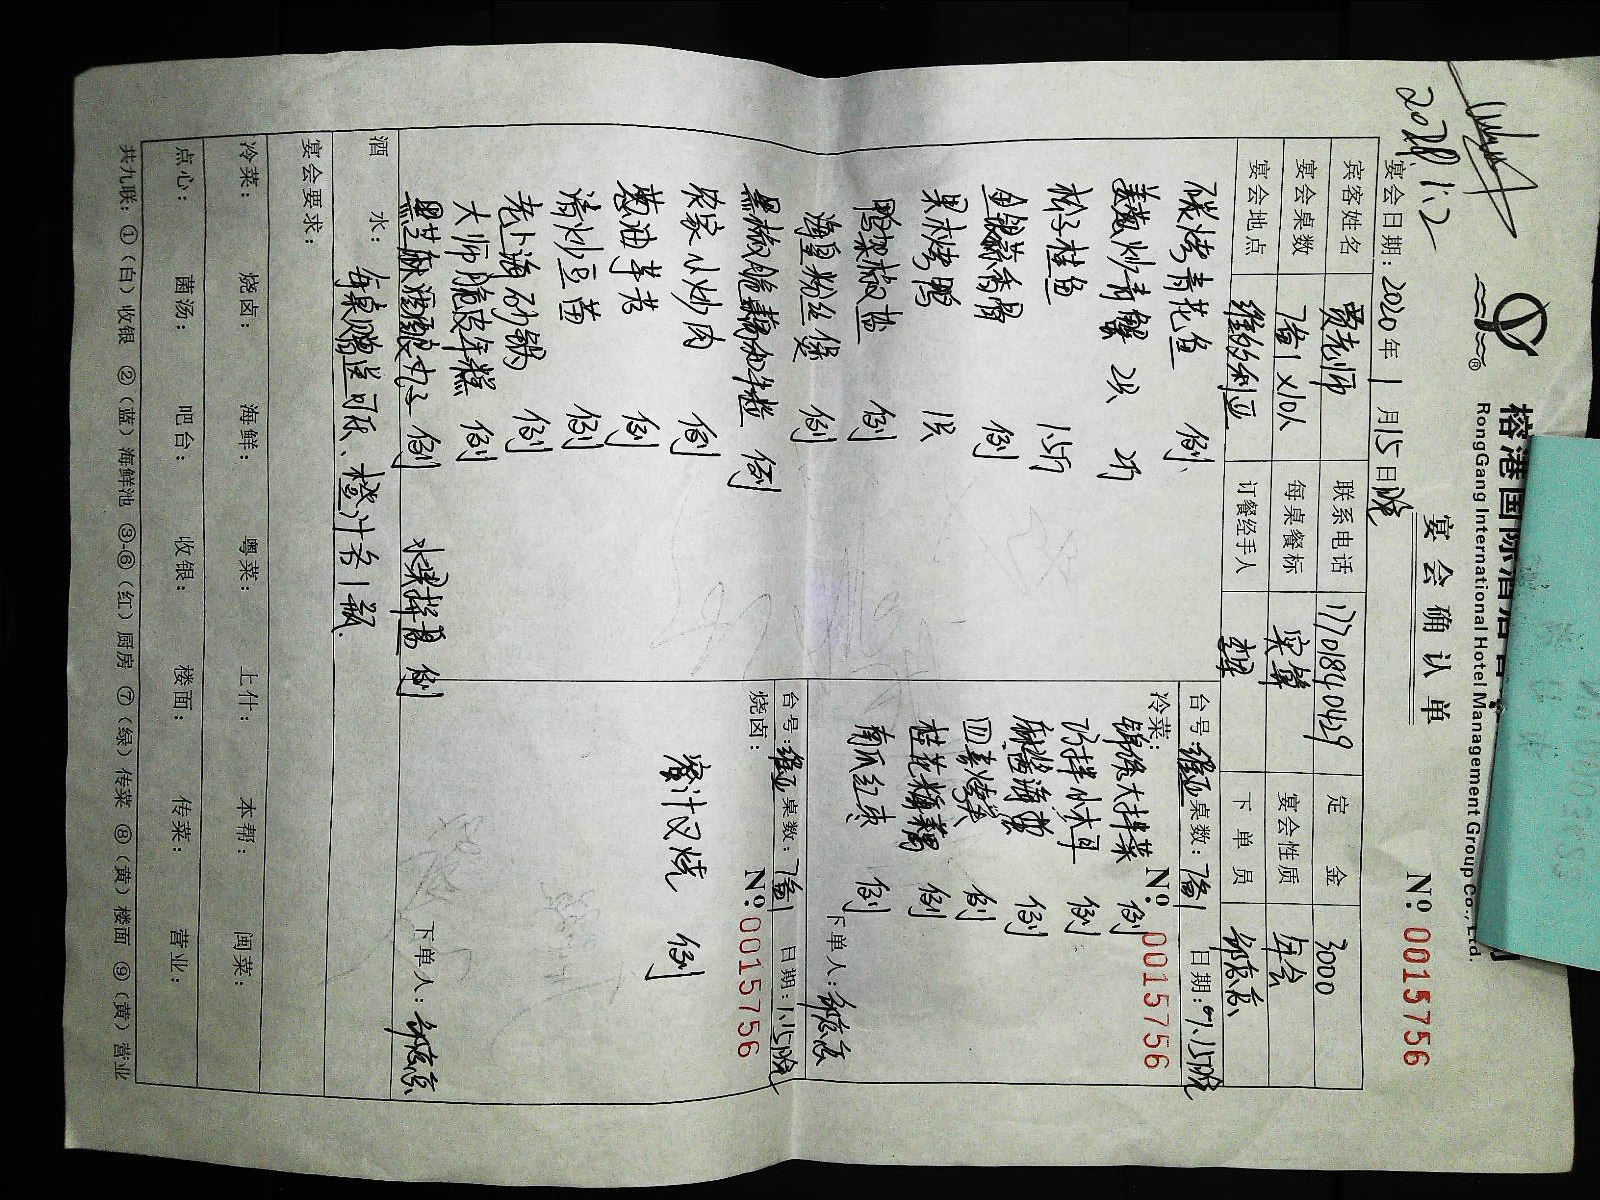 2020.1.2
榕港国际酒店管
RongGang International Hotel Management Group Co., Ltd.
宴会确认单
№: 0015756
宴会日期: 2020 年 1 月 15 日 晚
宾客姓名 贾老师 联系电话 17701840429 定金 3000
宴会桌数 7备1 X10人 每桌餐标 宴会性质 年会
宴会地点 维多利亚 订餐经手人 下单员
碳烤青花鱼 例
姜葱炒青蟹 2只 2斤
松子桂鱼 1.5斤
金银蒜香骨 例
果木烤鸭 1只
鸭架椒盐 例
海皇粉丝煲 例
例
农家小炒肉 例
葱油芋艿 例
清炒豆苗 例
老上海砂锅 例
大师脆皮年糕 例
例 水果拼盘 例
台号: 桌数: 7备1 日期: 1.15晚
冷菜:
№: 0015756
锦绣大拌菜 例
巧拌小木耳 例
麻酱海蜇 例
四喜烤麸 例
桂花糯米藕 例
南瓜红枣 例
下单人:
台号: 桌数: 7备1 日期: 1.15晚
烧卤:
№: 0015756
蜜汁叉烧 例
下单人:
酒水: 每桌赠送可乐、橙汁各1瓶.
宴会要求:
冷菜: 烧卤: 海鲜: 粤菜: 上什: 本帮: 闽菜:
点心: 菌汤: 吧台: 收银: 楼面: 传菜: 营业:
共九联: ①(白)收银 ②(蓝)海鲜池 ③-⑥(红)厨房 ⑦(绿)传菜 ⑧(黄)楼面 ⑨(黄)营业